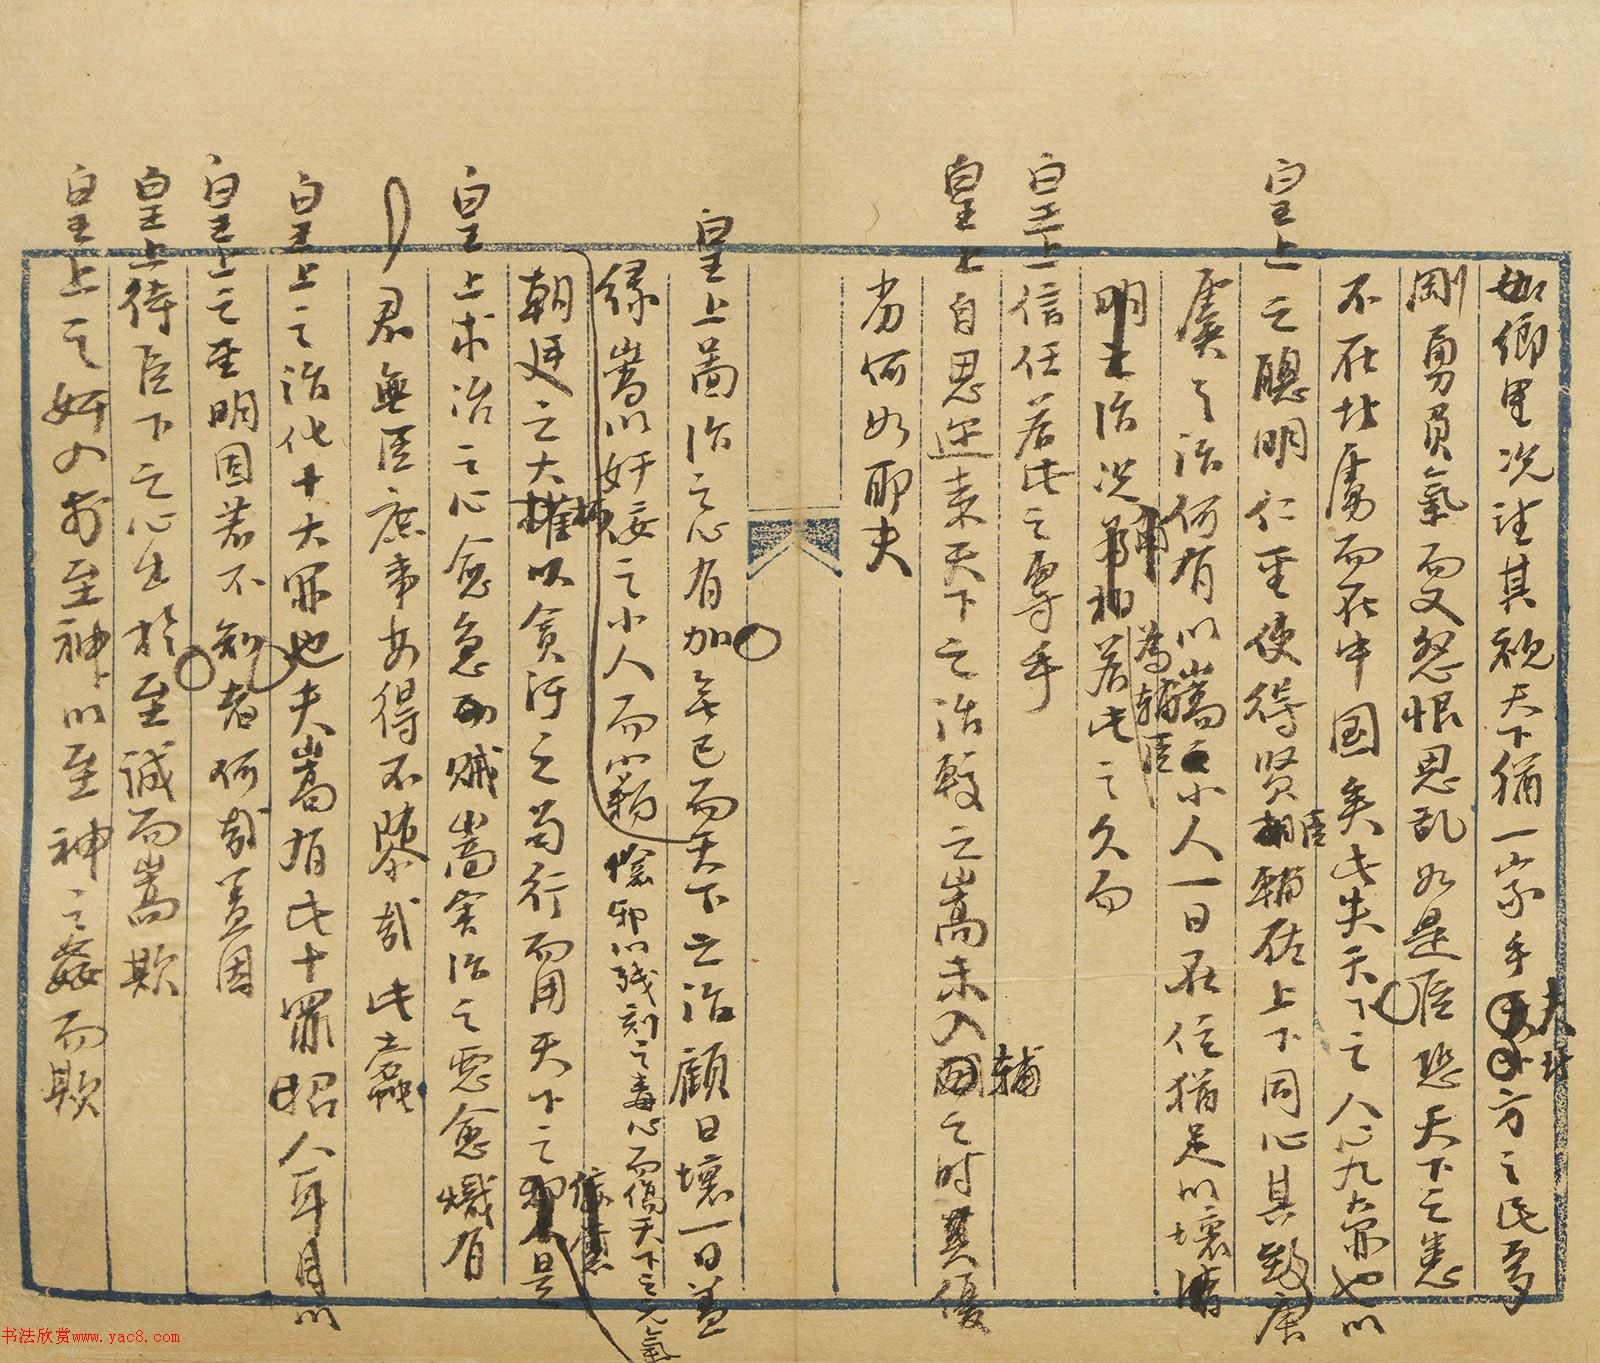 如鄉里況望其視天下猶一家乎夫北方之民多
剛勇負氣而又怒恨思亂如是臣恐天下之患
不在北虜而在中国矣此失天下之人心九大罪也以
皇上之聰明仁聖使得賢臣輔佐上下同心其致唐
虞之治何有以嵩小人一日在位猶足以壞清
明之治況為輔臣若此之久而
皇上信任若此之專乎
皇上自思邇来天下之治較之嵩未入輔之時其優
劣何如耶夫
皇上啚治之心有加無已而天下之治顧日壞一日盖
缘嵩以奸佞之小人而
憸邪以残刻之毒心而傷天下之元氣
朝廷之大柄以貪汚之苟行而用天下之
皇上求治之心愈急而賊嵩害治之惡愈熾有
君無臣庶事安得不隳哉此蠧
皇上之治化十大罪也夫嵩有此十罪昭人耳目以
皇上之聖明固若不知者何哉盖因
皇上待臣下之心出於至誠而嵩欺
皇上之奸又お至神以至神之姦而欺
书法欣赏www.yac8.com